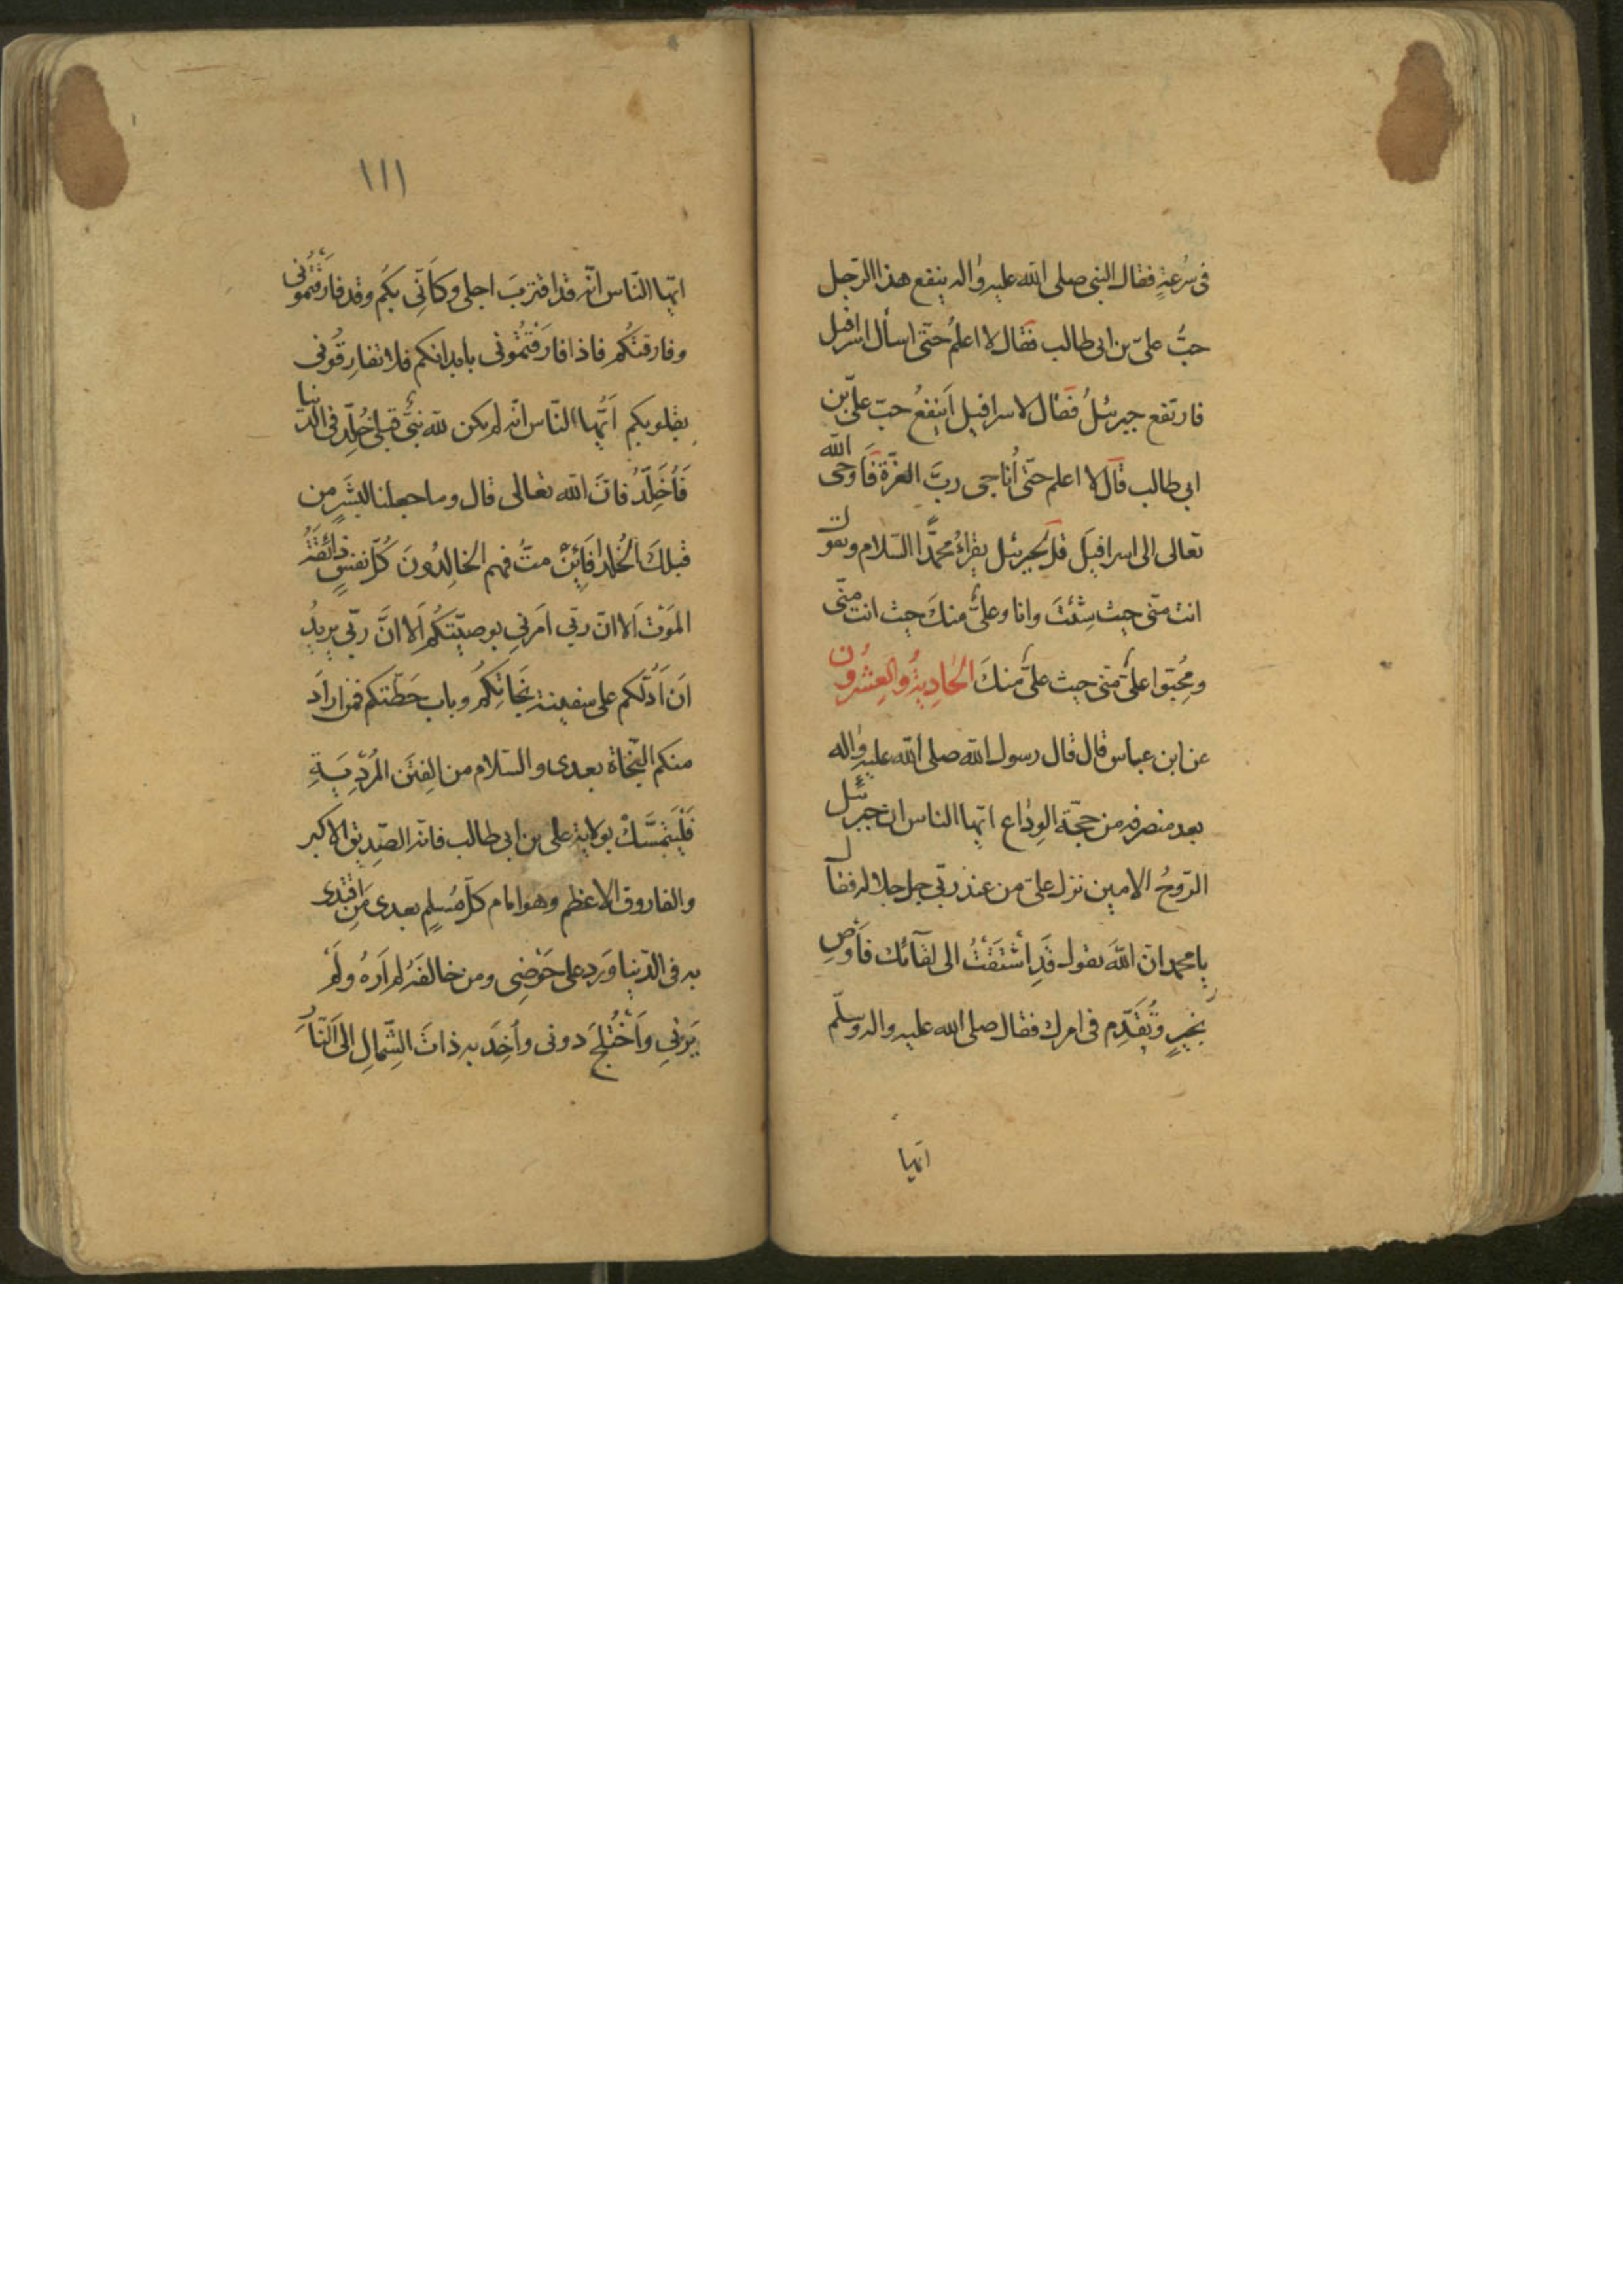 فى سُرعةٍ فقال النبى صلى الله عليه واله ينفع هذا الرّجل
حبُّ علىّ بن ابى طالب فقال لا اعلمُ حتّى اسأل اسرافيل
فارتفع جبرئيلُ فقال لاسرافيل اَينفعُ حبّ علىّ بن
ابى طالب قال لا اعلم حتّى اُناجى ربَّ العزّة فَاَوحى الله
تعالى الى اسرافيلَ قل لجبرئيل يقراءُ محمّدًا السّلام ويقول
انت منّى حيث شِئتَ وانا وعلىٌّ منكَ حيث انت منّى
ومُحِبّوا علىٍّ منّى حيث علىٌّ منكَ الحَادِيةُ والعِشرُون
عن ابن عباس قال قال رسول الله صلى الله عليه واله
بعد منصرفه من حجّة الوِدٰاع ايّها الناس ان جبرئيل
الرّوحُ الامين نزل علىّ من عند ربّى جل جلاله فقال
يا محمد ان اللهَ يقول قَدِ اشْتَقْتُ الى لقآئك فَاَوْصِ
بخيرٍ وتُقَدِّم فى امرك فقال صلى الله عليه واله وسلّم
ايّها
١١١
ايّها النّاس انّه قد اقتربَ اجلى وكَاَنّى بكُم وقد فارَقْتُمُونى
وفارقتكُم فاذا فارَقْتُمُونى بابدانكم فلا تفارِقُونى
بقلوبكم اَيُّها النّاس انّه لم يكن لله نبىٌّ قبلى خُلِّد فى الدّنيا
فَاُخَلَّدُ فانَّ الله تعالى قال وما جعلنا لبَشَرٍ من
قبلكَ الخُلد اَفَاِئنْ متُّ فهم الخالِدُونَ كُلّ نفسٍ ذائقَةُ
المَوْت اَلا انّ ربّى اَمَرنى بوصيّتكُم اَلا انَّ ربّى يريدُ
اَن اَدُلَّكم على سفينة نجَاتِكُمْ وباب حَطّتكم فمن ارادَ
منكم النّجاة بعدى والسّلام من الفِتَن المُرْدِيَةِ
فَليَتمَسَّكْ بولاية على بن ابى طالب فانّه الصّديق الاكبر
والفاروق الاعظم وهو امام كلّ مُسلمٍ بعدى مَن اقتدى
به فى الدّنيا وَرد على حَوْضِى ومن خالفَهُ لم اَرَهُ ولَمْ
يَرَنى وَاُخْتُلِجَ دونى واُخِذَ به ذاتَ الشِّمالِ الى النّار